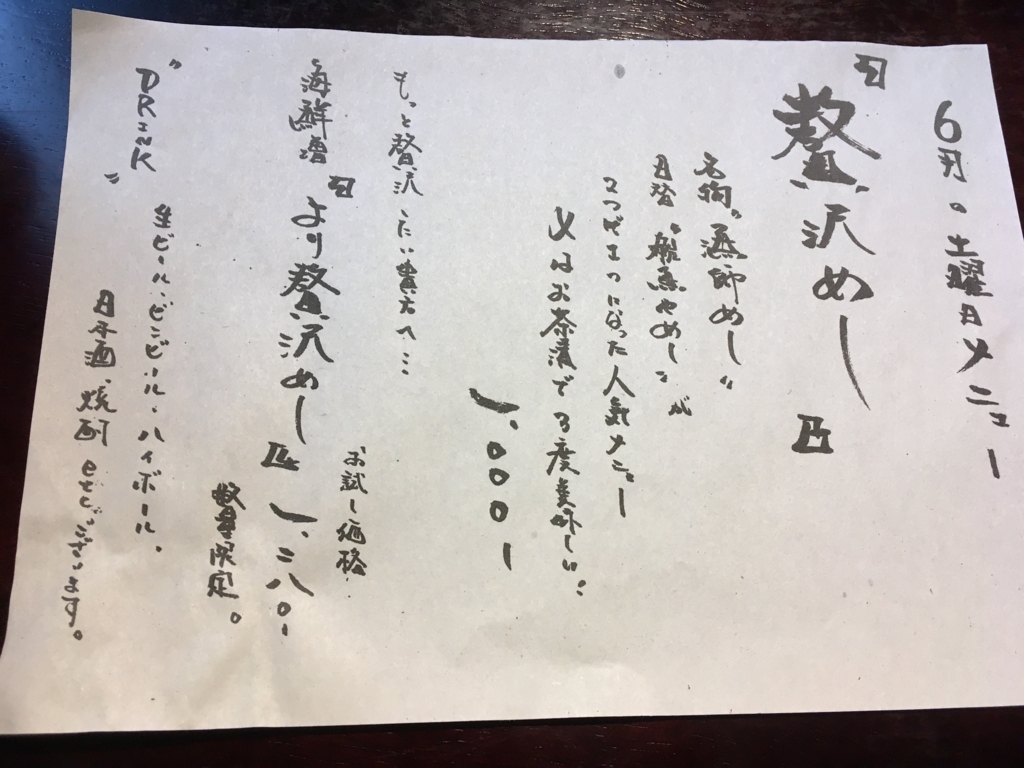 6月の土曜日メニュー
『贅沢めし』
名物"漁師めし"
日替"船魚やめし"が
2つが1つになった人気メニュー
〆はお茶漬で3度美味しい!
一、〇〇〇ー
もっと贅沢したい貴方へ…
海鮮増
『より贅沢めし』
お試し価格
一、二八〇ー
数量限定。
"DRINK"
生ビール・ビンビール・ハイボール・
日本酒・焼酎etcございます。